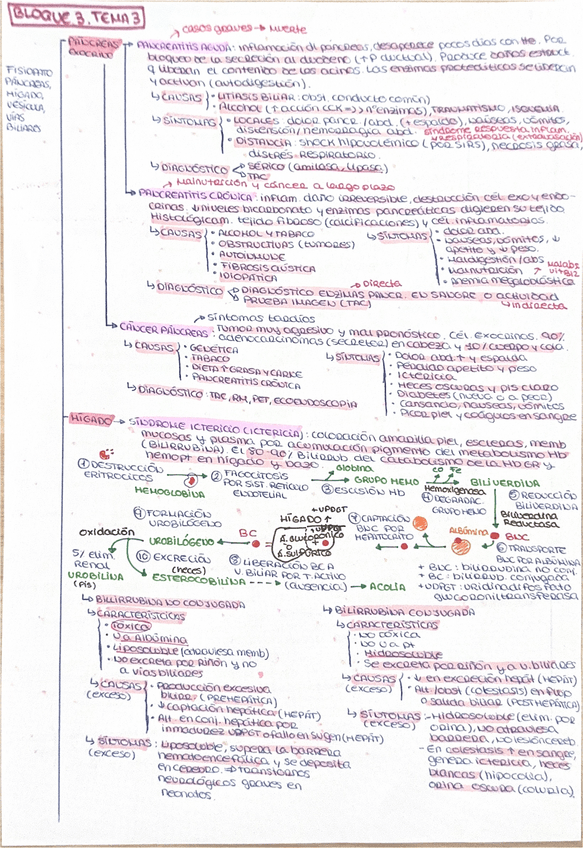 BLOQUE 3. TEMA 3
casos graves → muerte
FISIOPATO
PÁNCREAS,
HÍGADO,
VESÍCULA,
VÍAS
BILIARES
PÁNCREAS
EXOCRINO
PANCREATITIS AGUDA: inflamación del páncreas, desaparece pocos días con tte. Por
bloqueo de la secreción al duodeno (↑P ductual). Produce daños estruct
y liberan el contenido de los acinos. Las enzimas proteolíticas se liberan
y activan (autodigestión).
CAUSAS
• LITIASIS BILIAR: obst. conducto común)
• Alcohol (↑ acción CCK => > nº enzimas), TRAUMATISMO, ISQUEMIA
SÍNTOMAS
• LOCALES: dolor pancr/abd. (↑ espalda), náuseas, vómitos,
distensión/hemorragia abd. síndrome respuesta inflam.
• DISTANCIA: shock hipovolémico (por SIRS), necrosis grasa,
distrés respiratorio.
DIAGNÓSTICO
• SÉRICO (amilasa, lipasa)
• TAC
Malnutrición y cáncer a largo plazo
PANCREATITIS CRÓNICA: inflam, daño irreversible, destrucción cél exo y endo-
crinas. ↓ niveles bicarbonato y enzimas pancreáticas digieren su tejido
Histológicam: tejido fibroso (calcificaciones) y cél inflamatorias.
CAUSAS
• ALCOHOL Y TABACO
• OBSTRUCTIVAS (tumores)
• AUTOINMUNE
• FIBROSIS QUÍSTICA
• IDIOPÁTICA
SÍNTOMAS
• dolor abd.
• náuseas, vómitos, ↓
apetito y ↓ peso.
• Maldigestión/abs
• Malnutrición ↗ malabs
vit B12
• Anemia megaloblástica
Directa
DIAGNÓSTICO
DIAGNÓSTICO ENZIMAS PANCR. EL SANGRE O actividad
PRUEBA IMAGEN (TAC)
indirecta
síntomas tardíos
CÁNCER PÁNCREAS: Tumor muy agresivo y mal pronóstico. Cél. exocrinas. 90%
adenocarcinomas (secretor) en cabeza y 10% cuerpo y cola.
CAUSAS
• GENÉTICA
• TABACO
• DIETA ↑ GRASA Y CARNE
• PANCREATITIS CRÓNICA
SÍNTOMAS
• Dolor abd. ↑ y espalda
• Pérdida apetito y peso
• Ictericia
• Heces oscuras y pis claro
• Diabetes (nueva o a peor)
• Cansancio, náuseas, vómitos
• Picor piel y coágulos en sangre
DIAGNÓSTICO: TAC, RM, PET, ECOENDOSCOPIA
HÍGADO → SÍNDROME ICTÉRICO (ICTERICIA): coloración amarilla piel, escleras, memb
mucosas y plasma por acumulación pigmento del metabolismo Hb
(BILIRRUBINA). El 80-90% Bilirrub del catabolismo de la Hb GR y
hemopt en hígado y bazo.
① DESTRUCCIÓN
ERITROCITOS
HEMOGLOBINA
② FAGOCITOSIS
POR SIST. RETÍCULO
ENDOTELIAL
Globina
GRUPO HEMO
③ ESCISIÓN Hb
CO Fe
Hemoxigenasa
④ DEGRADAC.
GRUPO HEMO
BILIVERDINA
⑤ REDUCCIÓN
BILIVERDINA
Biliverdina
Reductasa
BNC
⑥ TRANSPORTE
BNC POR ALBÚMINA
Albúmina
⑦ CAPTACIÓN
BNC POR
HEPATOCITO
↓UPDGT
HÍGADO ↑
↑UPDGT
A. glucurónico
A. sulfúrico
BC
⑧ LIBERACIÓN BC A
V. BILIAR POR T. ACTIVO
⑨ FORMACIÓN
UROBILÓGENO
UROBILÓGENO
oxidación
5% elim.
renal
UROBILINA
(pis)
⑩ EXCRECIÓN
(heces)
ESTERCOBILINA - - - → (ausencia) → ACOLIA
+ BNC: bilirrub no conj.
+ BC: bilirrub. conjugada
+ UDPGT: uridinadifosfato
glucoroniltransferasa
BILIRRUBINA NO CONJUGADA
CARACTERÍSTICAS
• TÓXICA
• U a ALBÚMINA
• Liposoluble (atraviesa memb)
• No excreta por riñón y no
a vías biliares
CAUSAS (exceso)
• Producción excesiva
biliar (PREHEPÁTICA)
• ↓ captación hepática (HEPÁT)
• Alt. en conj. hepática por
inmadurez UPDGT o fallo en su gen (HEPÁT)
SÍNTOMAS: Liposoluble, supera la barrera
(exceso) hematoencefálica y se deposita
en cerebro. ⇒ Trastornos
neurológicos graves en
neonatos.
BILIRRUBINA CONJUGADA
CARACTERÍSTICAS
• NO TÓXICA
• NO U a pt
• Hidrosoluble
• Se excreta por riñón y a v. biliares
CAUSAS (exceso)
• ↓ en excreción hepát (HEPÁT)
• Alt./obst (colestasis) en flujo
o salida biliar (POSTHEPÁTICA)
SÍNTOMAS: - Hidrosoluble (elim. por
(exceso) orina), no atraviesa
barrera, no lesión cereb
- En colestasis ↑ en sangre,
genera ictericia, heces
blancas (hipocolia),
orina oscura (coluria).